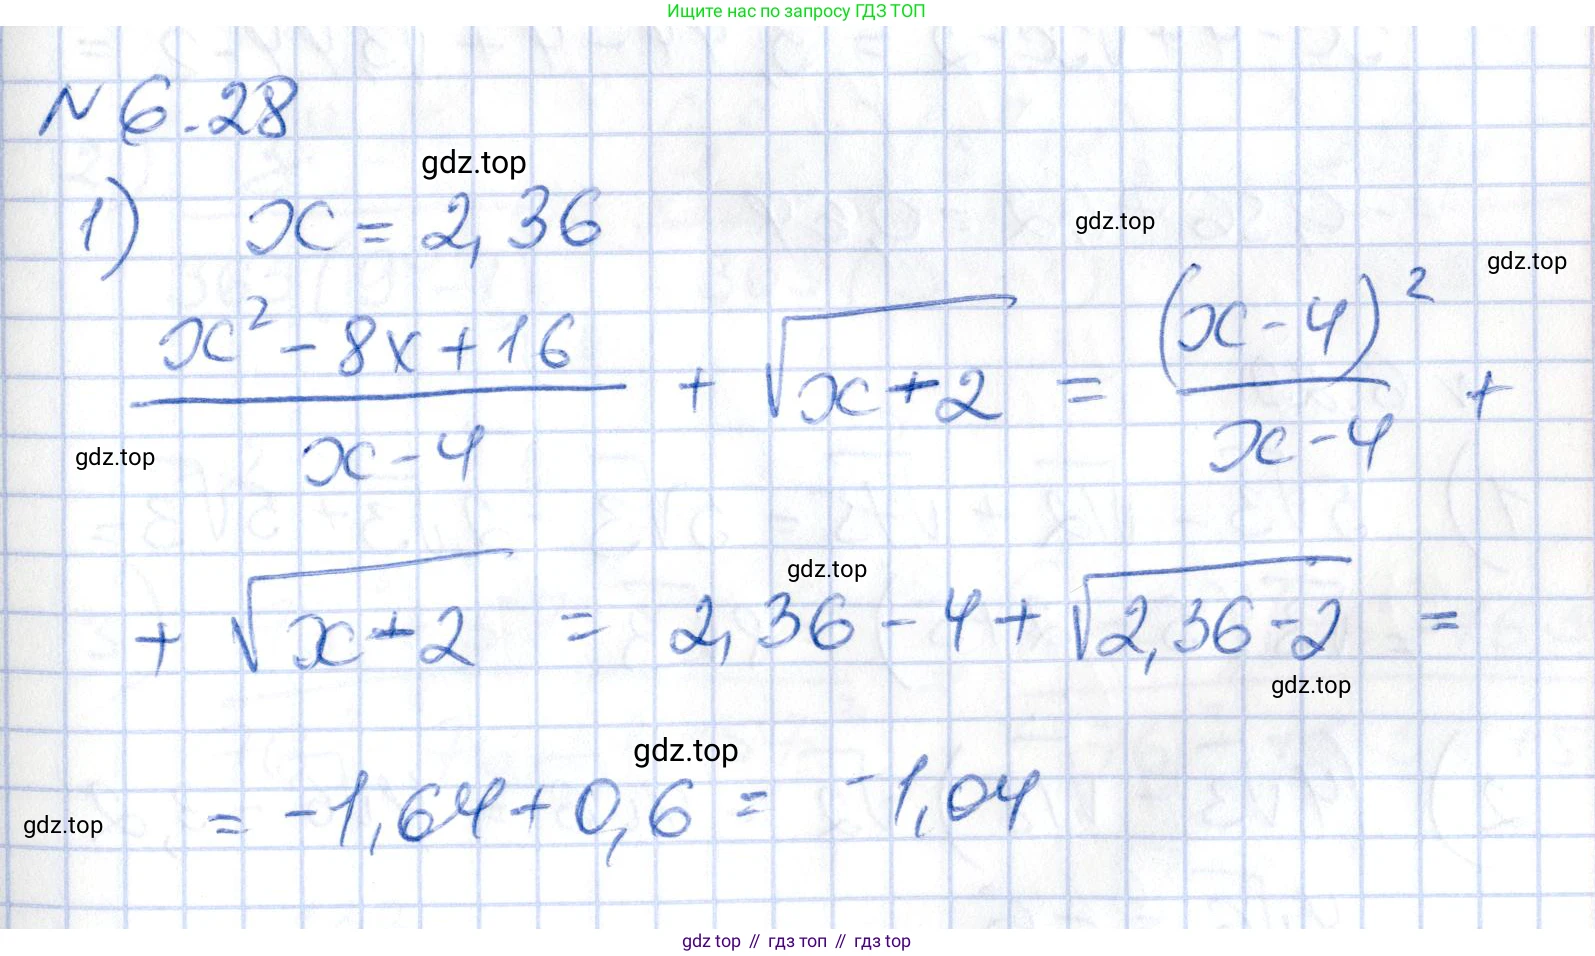 Ищите нас по запросу ГДЗ ТОП
№ 6.28
gdz.top
1) x = 2,36
gdz.top
gdz.top
(x² - 8x + 16)/(x - 4) + √(x + 2) = (x - 4)²/(x - 4) +
gdz.top
gdz.top
+ √(x + 2) = 2,36 - 4 + √(2,36 - 2) =
gdz.top
gdz.top
= -1,64 + 0,6 = -1,04
gdz.top
gdz top // гдз топ // гдз top